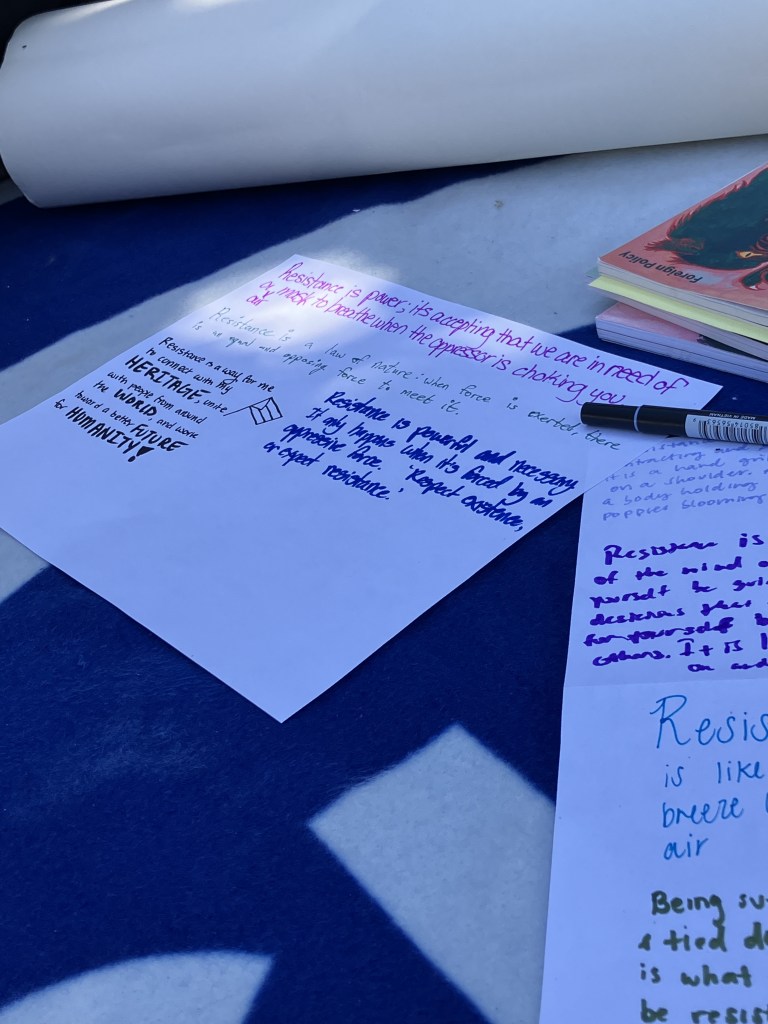 Foreign Policy
Resistance is power; its accepting that we are in need of
a mask to breathe when the oppressor is choking you
air
Resistance is a law of nature: when force is exerted, there
is an equal and opposing force to meet it.
Resistance is a way for me
to connect with my
HERITAGE, unite
with people from around
the WORLD and work
toward a better FUTURE
for HUMANITY!
Resistance is powerful and necessary
It only happens when its forced by an
oppressive force. 'Respect existence,
or expect resistance.'
MADE IN VIETNAM
it is a hand
on a shoulder.
a body holding
poppies blooming
Resistance is
of the mind
yourself be
for yourself
others. It is
on and
Resis
is like
breeze
air
Being su
a tied de
is what
be resist